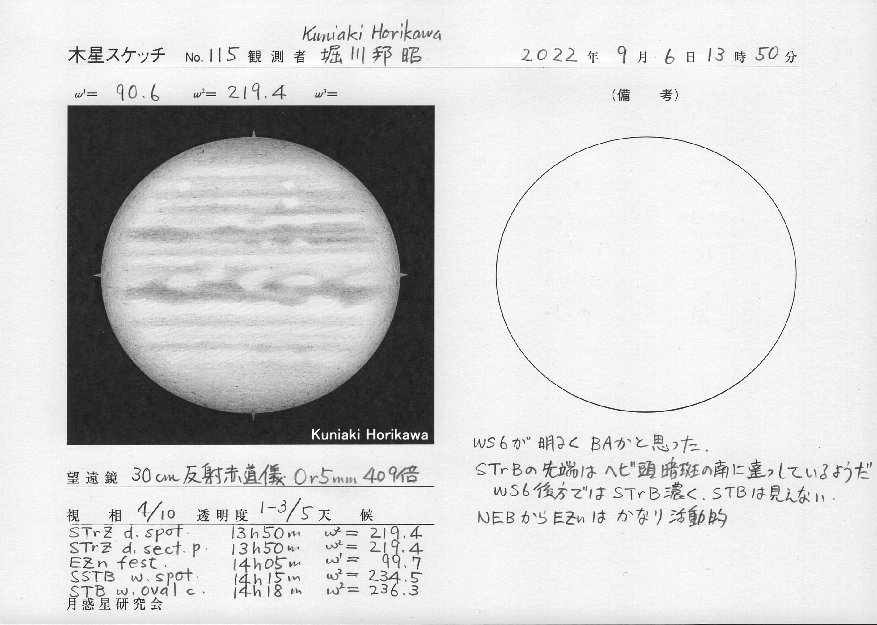 Kuniaki Horikawa
木星スケッチ No. 115 観測者 堀川邦昭 2022年 9月 6日 13時 50分
ω¹= 90.6 ω²= 219.4 ω³=
(備 考)
Kuniaki Horikawa
WS6が明るくBAかと思った.
STrBの先端はヘビ頭暗斑の南に達っしているようだ
WS6後方ではSTrB濃く、STBは見えない.
NEBからEZnはかなり活動的
望遠鏡 30cm 反射赤道儀 Or5mm 409倍
視 相 4/10 透明度 1-3/5 天 候
STrZ d. spot. 13h50m ω²= 219.4
STrZ d. sect. p. 13h50m ω²= 219.4
EZn fest. 14h05m ω¹= 99.7
SSTB w. spot. 14h15m ω²= 234.5
STB w. oval c. 14h18m ω²= 236.3
月惑星研究会